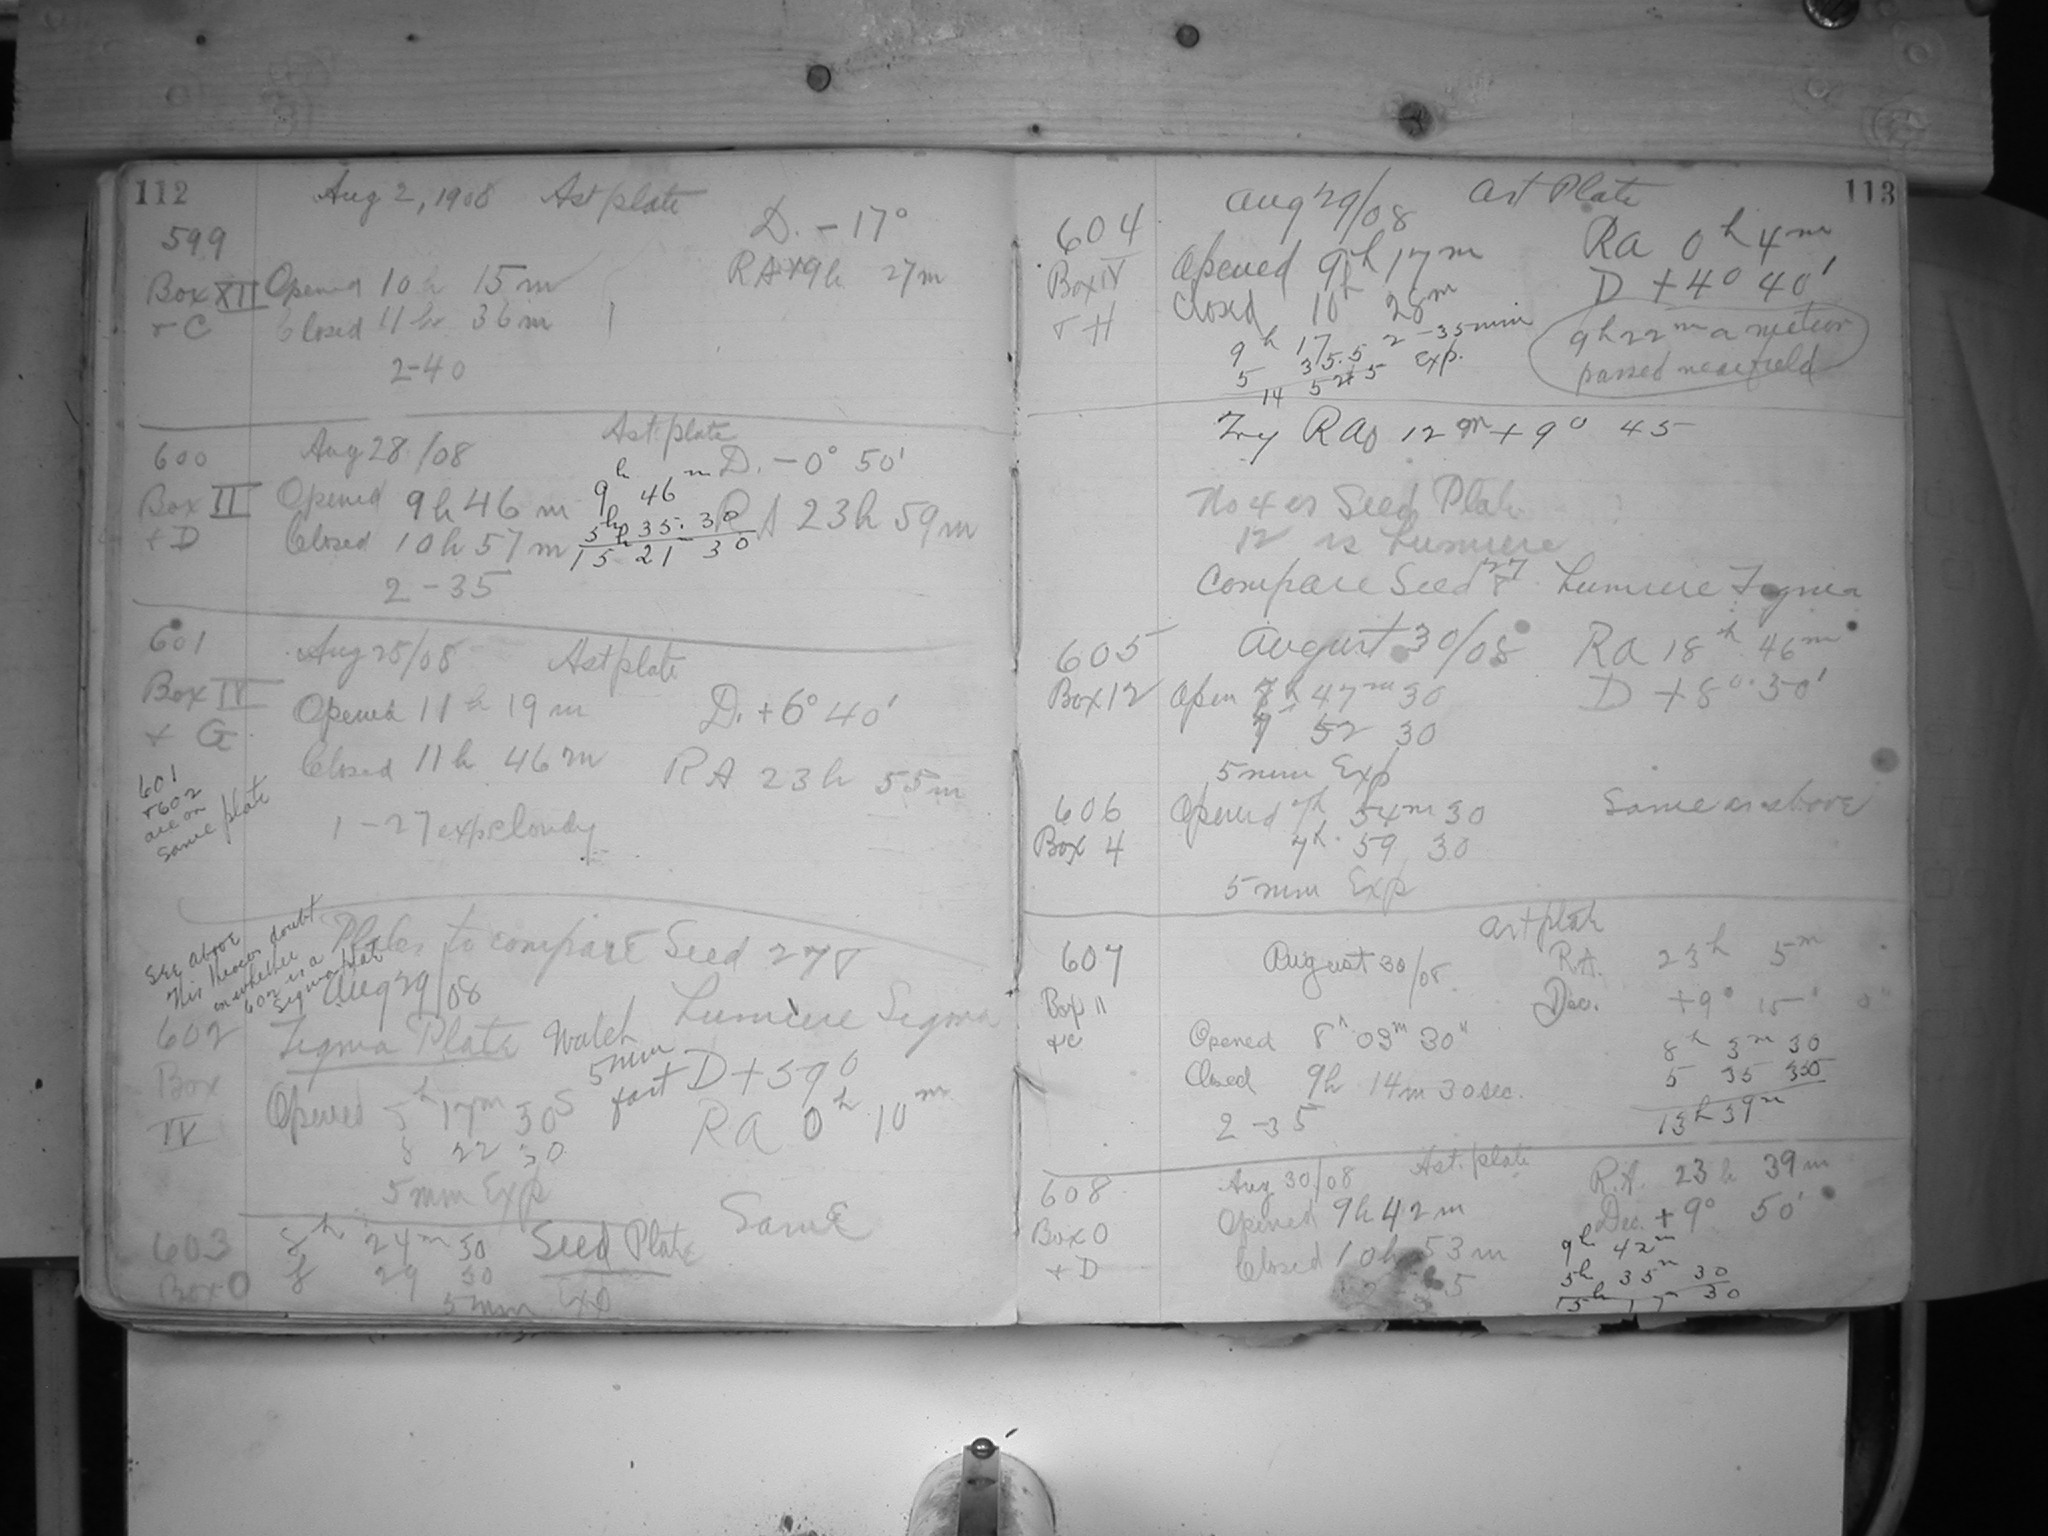 112
Aug 2, 1908 Ast plate
599 D. -17°
Box XII Opened 10h 15m RA 19h 27m
+ C Closed 11h 36m
2-40
600 Aug 28/08 Ast. plate
D. -0° 50'
Box II Opened 9h 46m 9h 46m RA 23h 59m
+ D Closed 10h 57m 5h 35 30
15 21 30
2-35
601 Aug 28/08 Ast plate
Box IV Opened 11h 19m D. +6° 40'
+ G Closed 11h 46m RA 23h 55m
601
+602
are on
same plate
1-27 exp cloudy
See above
This throws doubt
on whether
602 is a
Sigma plate
Plates to compare Seed 27 &
Aug 29/08 Lumiere Sigma
602 Sigma Plate Watch
5 min
fast
Box D +59°
IV Opened 17m 30s RA 0h 10m
8 22 30
5 min Exp
603 8h 24m 30 Seed Plate Same
Box 0 8 29 30
5 min Exp
113
Aug 29/08 Ast Plate
604 RA 0h 4m
Box IV Opened 9h 17m D +4° 40'
+ H Closed 10h 28m
9h 17 2-35 min
5 35.5 Exp.
14 52.5
9h 22m a meteor
passed near field
Try RA 0 12m +9° 45
No 4 is Seed Plate
12 is Lumiere
Compare Seed 27 & Lumiere Sigma
605 August 30/08 RA 18h 46m
Box 12 Open 7h 47m 30 D +8° 30'
7 52 30
5 min Exp
606 Opened 7h 54m 30 Same as above
Box 4 7h 59 30
5 min Exp
Ast plate
607 August 30/08 R.A. 23h 5m
Box 11 Dec. +9° 15' 0"
+C Opened 8h 03m 30" 8h 3m 30
Closed 9h 14m 30 sec. 5 35 30
2-35 13h 39m
608 Aug 30/08 Ast. plate R.A. 23h 39m
Box 0 Opened 9h 42m Dec. +9° 50'
+ D Closed 10h 53m 9h 42m
5h 35m 30
15h 17 30